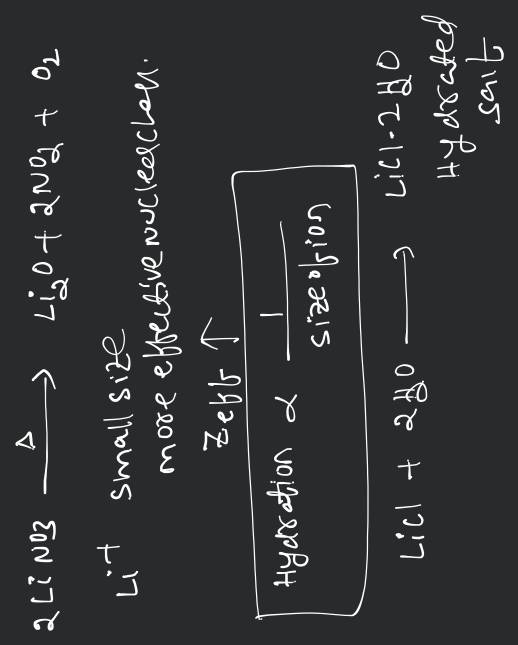 2LiNO3 —Δ→ Li2O + 2NO2 + O2
Li+ small size
more effective nuclear
Zeff ↑
Hydration ∝ 1/size of ion
LiCl + 2H2O ⟶ LiCl·2H2O
Hydrated
salt